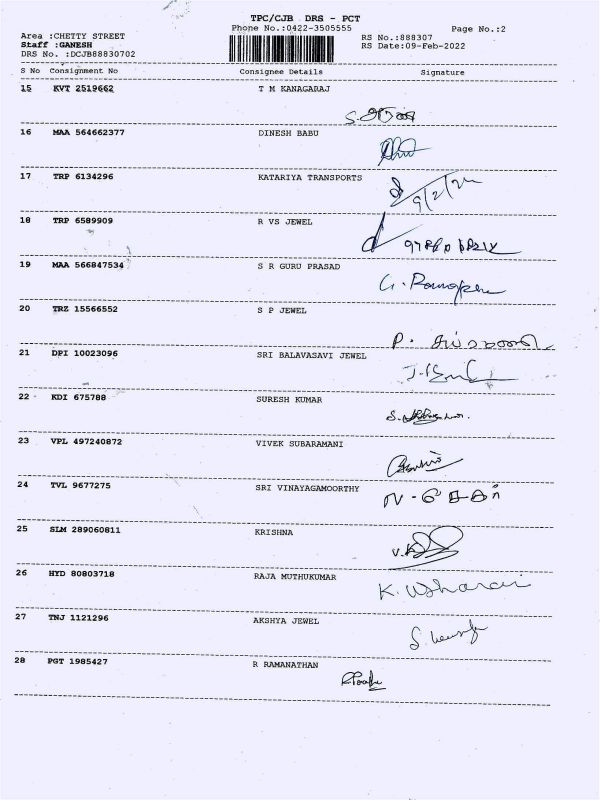 TPC/CJB DRS - PCT
Phone No.:0422-3505555
Page No.:2
Area :CHETTY STREET
RS No.:888307
Staff :GANESH
RS Date:09-Feb-2022
DRS No. :DCJB88830702
S No Consignment No Consignee Details Signature
15 KVT 2519662 T M KANAGARAJ
16 MAA 564662377 DINESH BABU
17 TRP 6134296 KATARIYA TRANSPORTS
9/2/22
18 TRP 6589909 R VS JEWEL
19 MAA 566847534 S R GURU PRASAD
20 TRZ 15566552 S P JEWEL
21 DPI 10023096 SRI BALAVASAVI JEWEL
22 KDI 675788 SURESH KUMAR
23 VPL 497240872 VIVEK SUBARAMANI
24 TVL 9677275 SRI VINAYAGAMOORTHY
25 SLM 289060811 KRISHNA
26 HYD 80803718 RAJA MUTHUKUMAR
27 TNJ 1121296 AKSHYA JEWEL
28 PGT 1985427 R RAMANATHAN